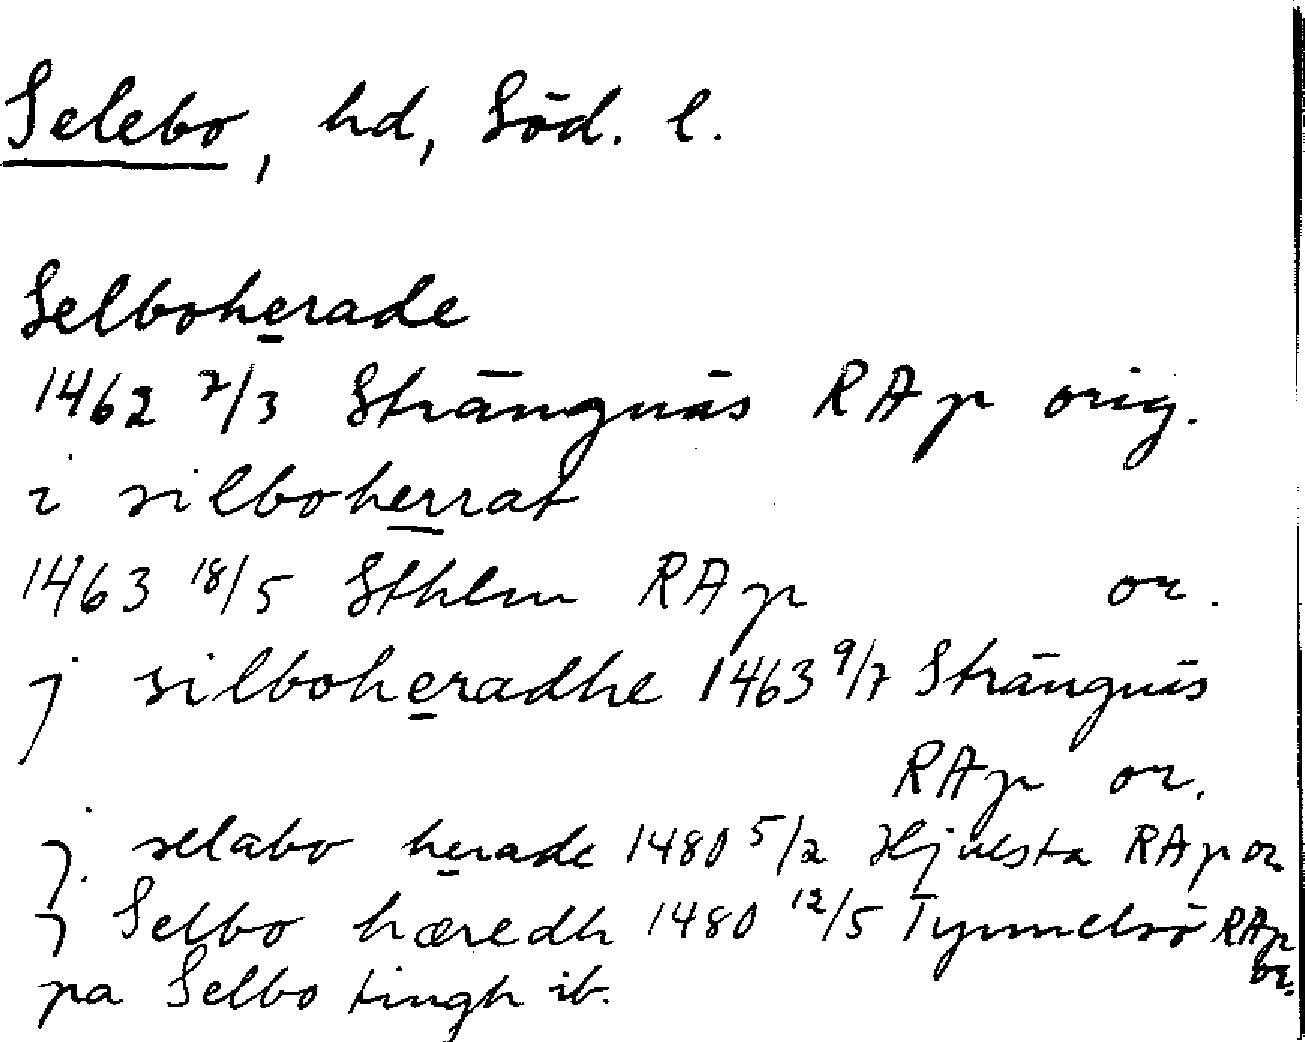 Selebo, hd, Söd. l.
Selboherade
1462 7/3 Strängnäs RAp orig.
i silboherrat
1463 18/5 Sthlm RAp or.
j silboheradhe 1463 9/7 Strängnäs
RAp or.
j. selabo herade 1480 5/2 Hjulsta RAp or
j Selbo hæredh 1480 12/5 Tynnelsö RAp
or.
pa Selbo tingh ib.